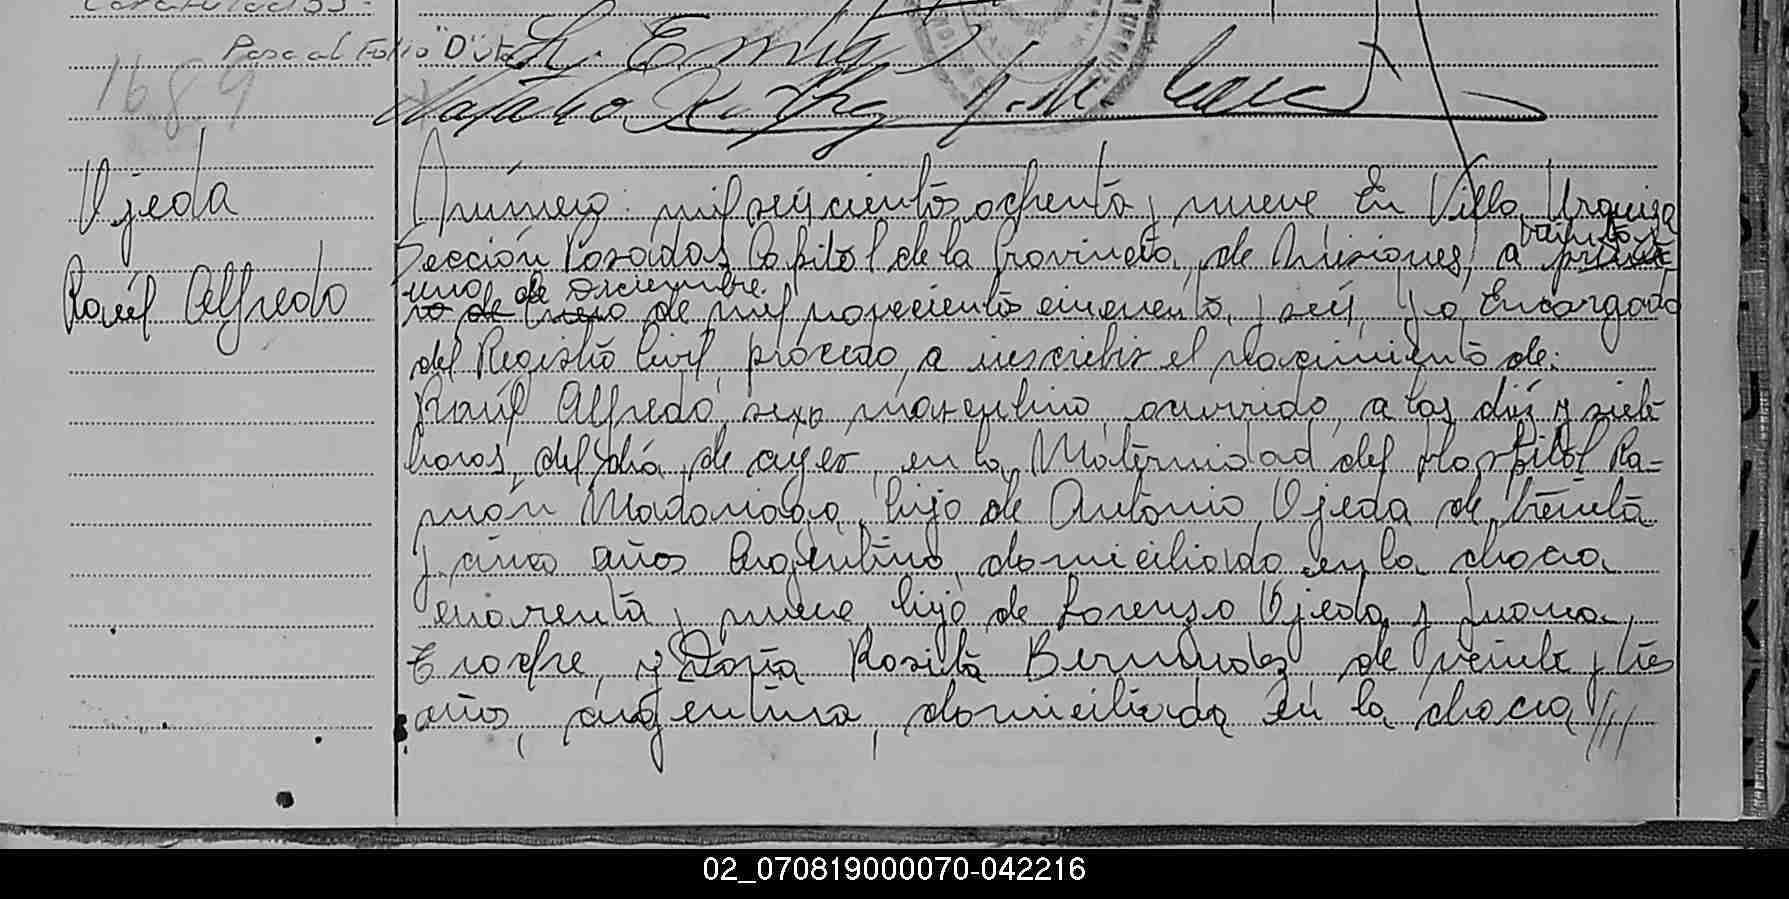 Pasa al Folio "D" vta
1689
Ojeda
Raúl Alfredo
Número: mil seiscientos ochenta y nueve En Villa Urquiza
Sección Posadas Capital de la Provincia de Misiones, a veinti
uno de Diciembre
de mil novecientos cincuenta y seis, Yo, Encargado
del Registro Civil, procedo, a inscribir el nacimiento de:
Raúl Alfredo, sexo masculino, ocurrido, a las diez y siete
horas, del día, de ayer, en la Maternidad del Hospital Ra=
món Madariaga, hijo de Antonio Ojeda de treinta
y cinco años Argentino, domiciliado en la chacra
cuarenta y nueve, hijo de Lorenzo Ojeda y Juana
y Doña Rosita Bermudez de veinte y tres
años, argentina, domiciliada en la chacra ///
02_070819000070-042216